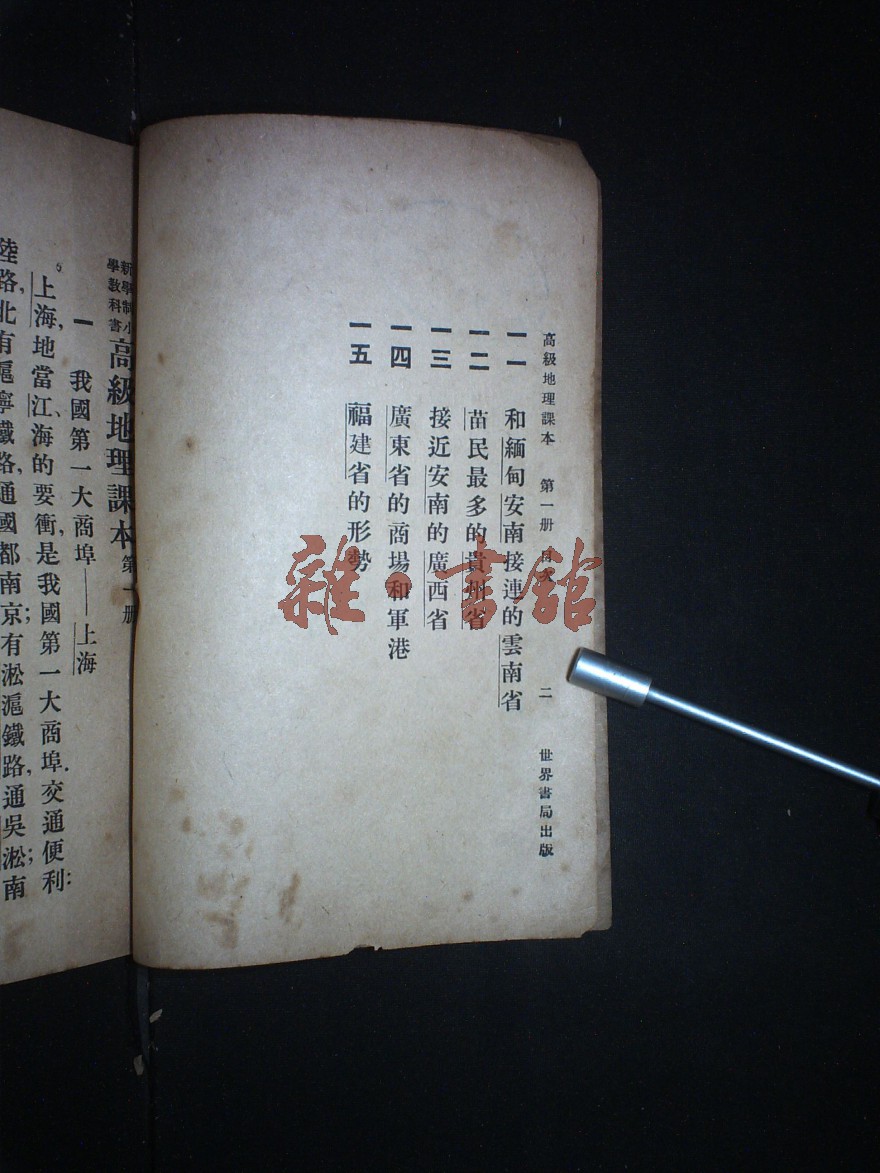 高級地理課本 第一册 目次 二 世界書局出版
一一 和緬甸安南接連的雲南省
一二 苗民最多的貴州省
一三 接近安南的廣西省
一四 廣東省的商場和軍港
一五 福建省的形勢
雜·書館
新學制小學教科書 高級地理課本 第一册
一 我國第一大商埠——上海
上海，地當江、海的要衝，是我國第一大商埠．交通便利：
陸路，北有滬寧鐵路，通國都南京；有淞滬鐵路，通吳淞；南